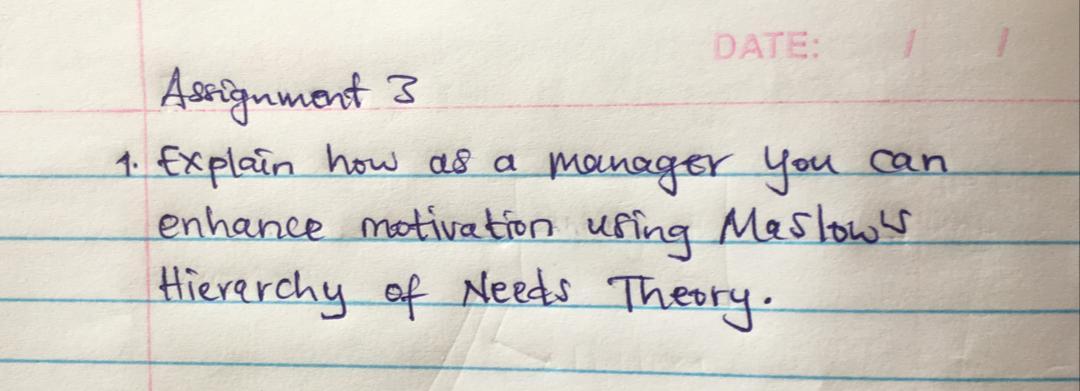 DATE: / /
Assignment 3
1. Explain how as a manager you can
enhance motivation using Maslow's
Hierarchy of Needs Theory.